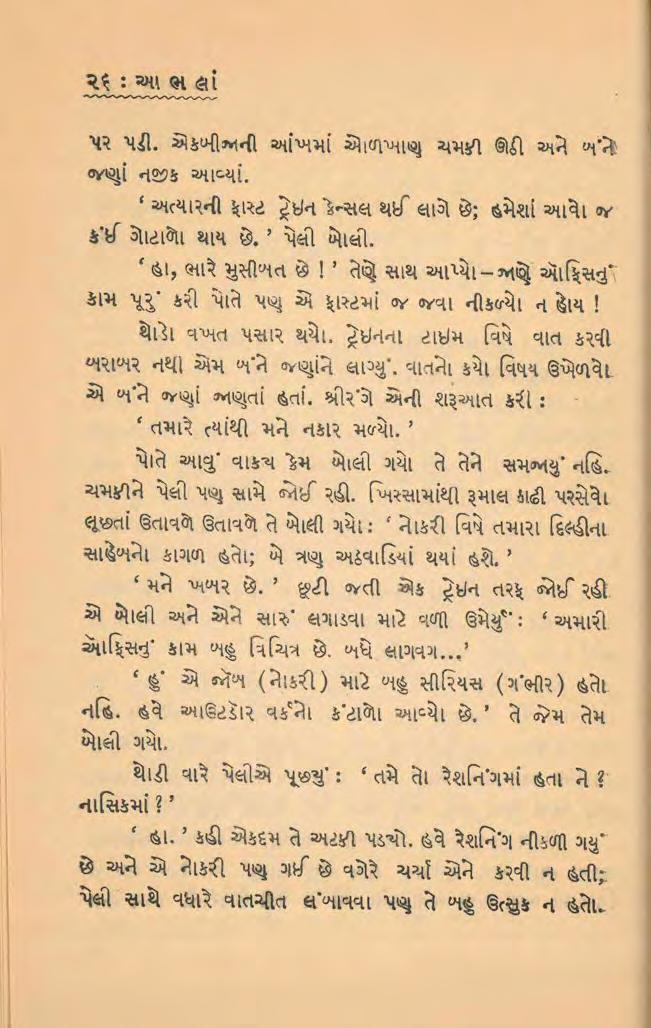 ૨૬ : આ ભ લાં
પર પડી. એકબીજાની આંખમાં ઓળખાણ ચમકી ઊઠી અને બંને
જણાં નજીક આવ્યાં.
‘ અત્યારની ફાસ્ટ ટ્રેઇન કેન્સલ થઈ લાગે છે; હમેશાં આવો જ
કંઈ ગોટાળો થાય છે. ’ પેલી બોલી.
‘ હા, ભારે મુસીબત છે ! ’ તેણે સાથ આપ્યો – જાણે ઑફિસનું
કામ પૂરું કરી પોતે પણ એ ફાસ્ટમાં જ જવા નીકળ્યો ન હોય !
થોડો વખત પસાર થયો. ટ્રેઇનના ટાઇમ વિષે વાત કરવી
બરાબર નથી એમ બંને જણાંને લાગ્યું. વાતનો કયો વિષય ઉખેળવો
એ બંને જણાં જાણતાં હતાં. શ્રીરંગે એની શરૂઆત કરી :
‘ તમારે ત્યાંથી મને નકાર મળ્યો. ’
પોતે આવું વાકય કેમ બોલી ગયો તે તેને સમજાયું નહિ.
ચમકીને પેલી પણ સામે જોઈ રહી. ખિસ્સામાંથી રૂમાલ કાઢી પરસેવો
લૂછતાં ઉતાવળે ઉતાવળે તે બોલી ગયો : ‘ નોકરી વિષે તમારા દિલ્હીના
સાહેબનો કાગળ હતો; બે ત્રણ અઠવાડિયાં થયાં હશે. ’
‘ મને ખબર છે. ’ છૂટી જતી એક ટ્રેઇન તરફ જોઈ રહી
એ બોલી અને એને સારું લગાડવા માટે વળી ઉમેર્યું : ‘ અમારી
ઑફિસનું કામ બહુ વિચિત્ર છે. બધે લાગવગ...’
‘ હું એ જૉબ (નોકરી) માટે બહુ સીરિયસ (ગંભીર) હતો
નહિ. હવે આઉટડોર વર્કનો કંટાળો આવ્યો છે. ’ તે જેમ તેમ
બોલી ગયો.
થોડી વારે પેલીએ પૂછ્યું : ‘ તમે તો રેશનિંગમાં હતા ને ?
નાસિકમાં ? ’
‘ હા. ’ કહી એકદમ તે અટકી પડ્યો. હવે રેશનિંગ નીકળી ગયું
છે અને એ નોકરી પણ ગઈ છે વગેરે ચર્ચા એને કરવી ન હતી;
પેલી સાથે વધારે વાતચીત લંબાવવા પણ તે બહુ ઉત્સુક ન હતો.